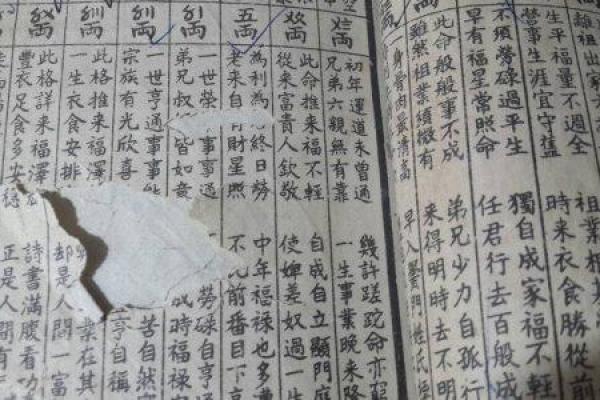 離祖出家
生平福量不週全
祖業
營事生涯宜守舊
時來衣食勝從前
不須勞碌過平生
獨自成家福不輕
早有福星常照命
任君行去百般成
此命般般事不成
弟兄少力自孤行
雖然祖業須微有
來得明時去不明
身骨肉最清高
早入黌門姓氏
両
初年運道未曾通
幾許蹉跎命亦窮
兄弟六親無有靠
一生事業晚來隆
両
此命推來福不輕
自成自立顯門庭
從來富貴人欽敬
使婢差奴過一生
五両
為利為 終日勞
中年福祿也多
老來自有財星照
不比前番目下高
両
一世榮 事事通
勞碌自亨
弟兄叔 皆如意
成時福祿
両
一世亨通事事能
苦自然
宗族有光欣喜
亨自稱
両
此格推來福澤
業在其
一生衣食安排
却是人間一富
両
此格詳來福澤
詩書滿腹看功
豐衣足食多安
正是人間有